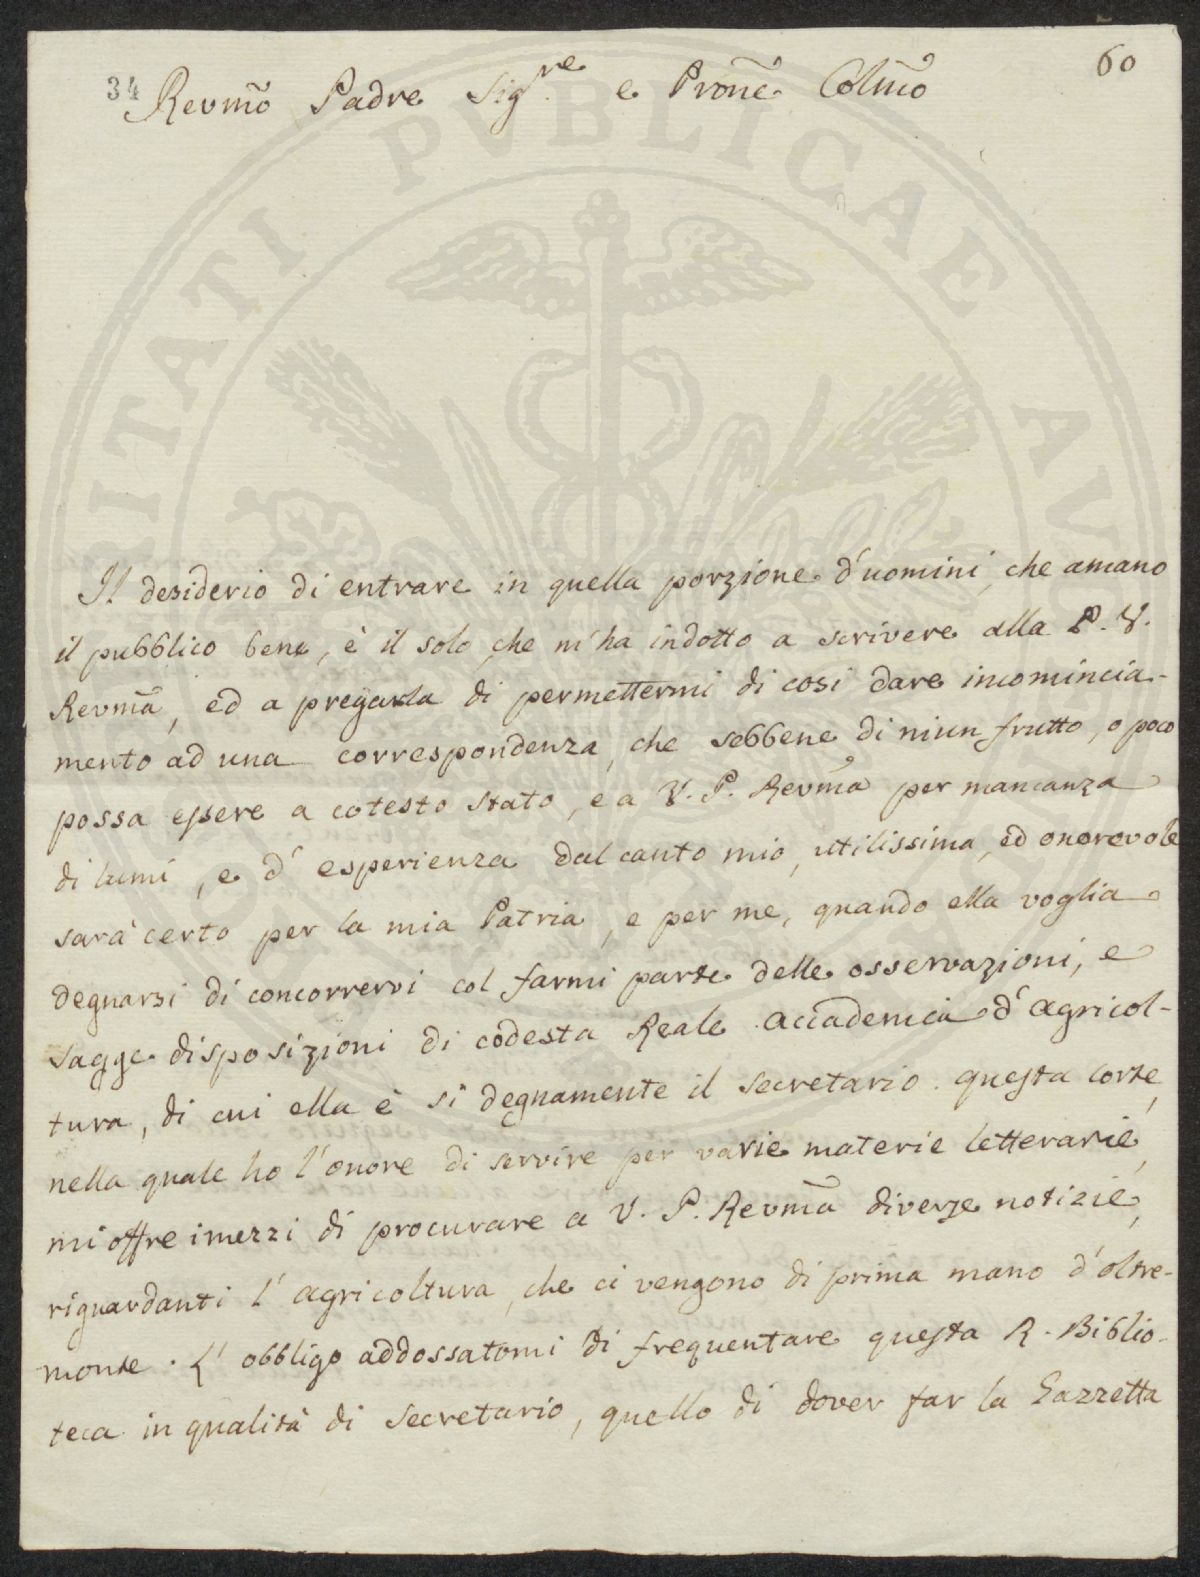 60
34
Revmo Padre Sigre e Prone Colmo
PVBLICAE
Il desiderio di entrare in quella porzione d'uomini, che amano
il pubblico bene, è il solo, che m'ha indotto a scrivere alla P. V.
Revma, ed a pregarla di permettermi di così dare incomincia-
mento ad una correspondenza, che sebbene di niun frutto, o poco
possa essere a cotesto Stato, e a V. P. Revma per mancanza
di lumi, e d'esperienza dal canto mio, utilissima, ed onorevole
sarà certo per la mia Patria, e per me, quando ella voglia
degnarsi di concorrervi col farmi parte delle osservazioni, e
sagge disposizioni di codesta Reale Accademia d'Agricol-
tura, di cui ella è sì degnamente il Secretario. Questa Corte,
nella quale ho l'onore di servire per varie materie letterarie,
mi offre i mezzi di procurare a V. P. Revma diverse notizie,
riguardanti l'Agricoltura, che ci vengono di prima mano d'oltre-
monte. L'obbligo addossatomi di frequentare questa R. Biblio-
teca in qualità di Secretario, quello di dover far la Gazzetta